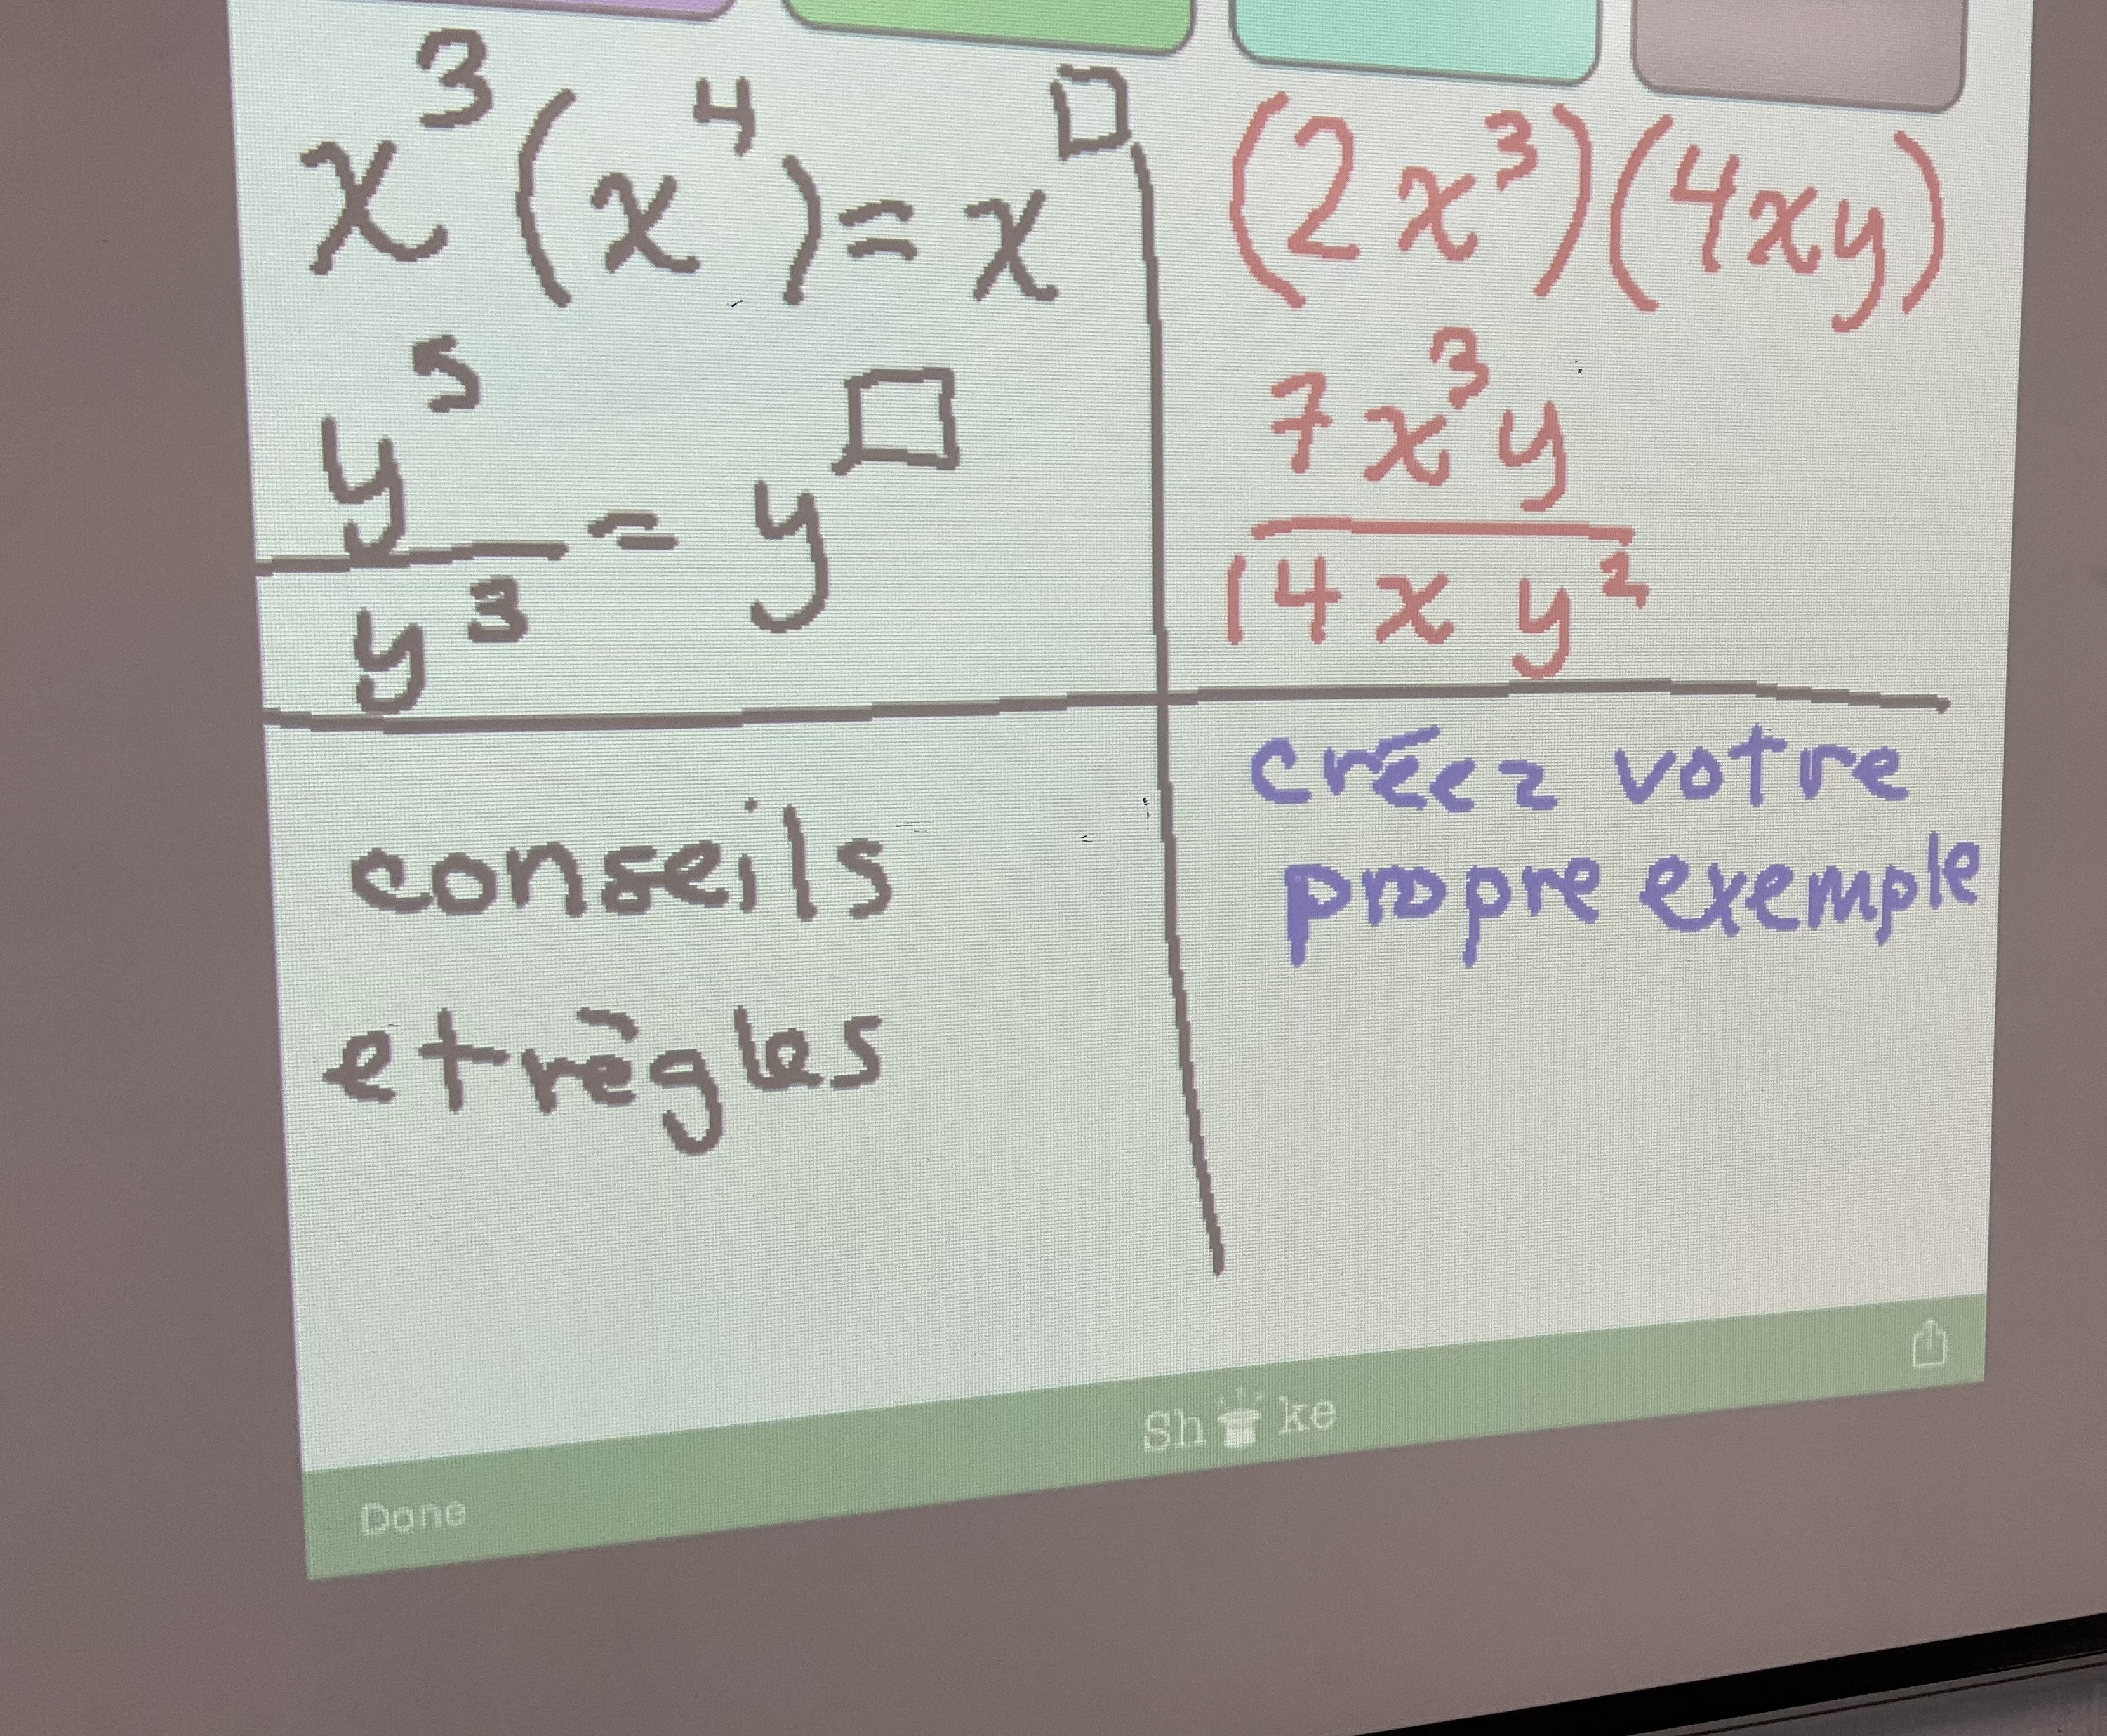 x³(x⁴)=x□
y⁵/y³ = y□
(2x³)(4xy)
7x³y/14xy²
conseils
et règles
créez votre
propre exemple
Done
Sh ke